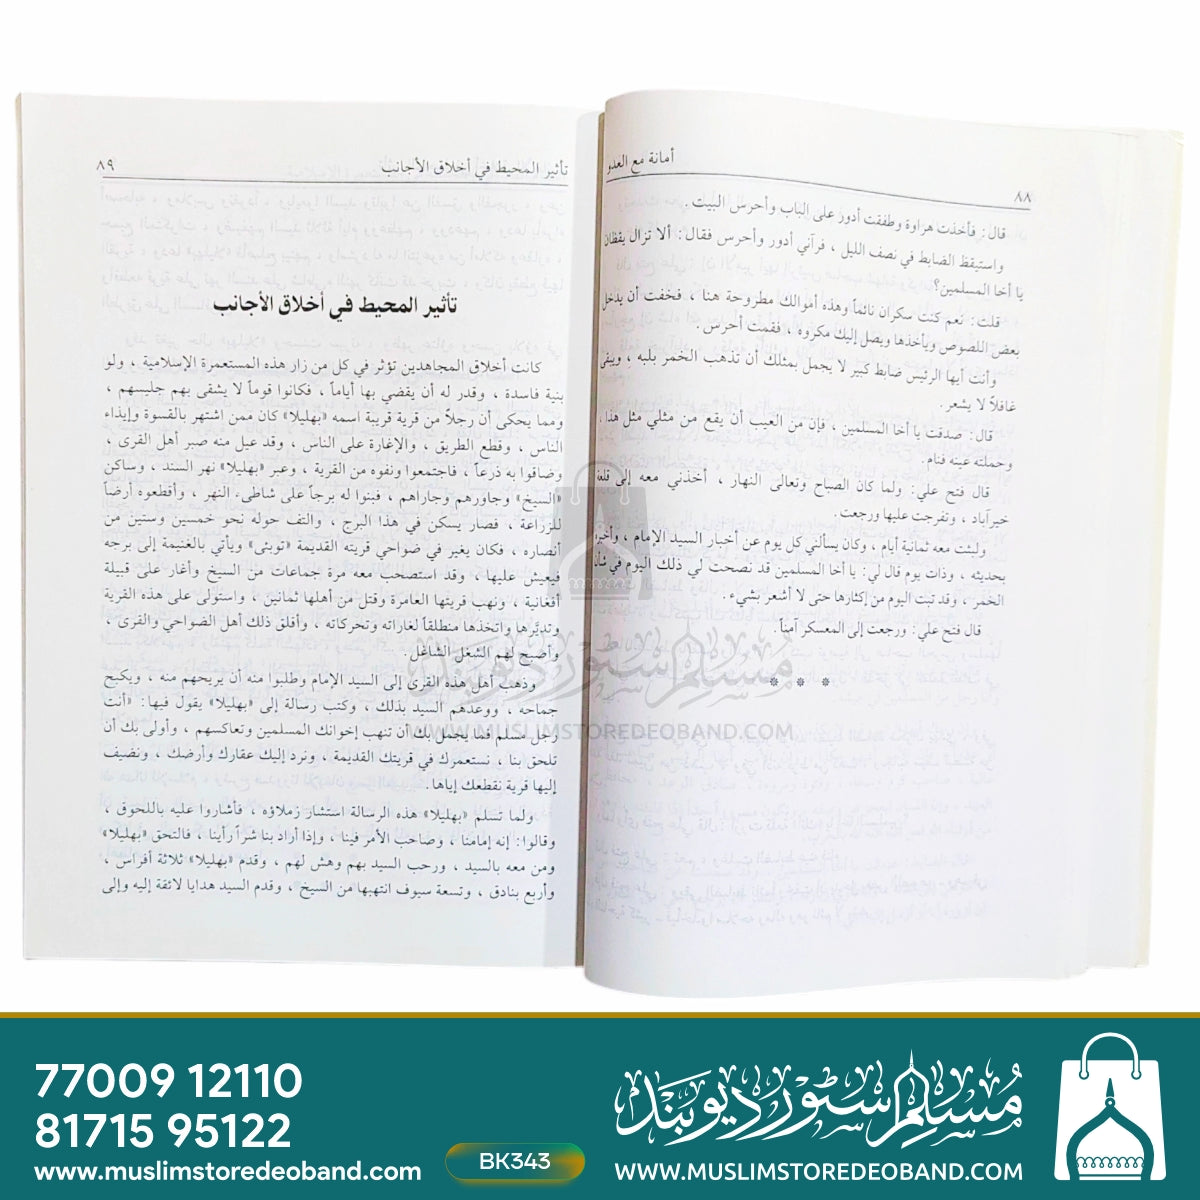 أمانة مع العدو
٨٨
قال: فأخذت هراوة وطفقت أدور على الباب وأحرس البيت .
واستيقظ الضابط في نصف الليل ، فرآني أدور وأحرس فقال: ألا تزال يقظان
يا أخا المسلمين؟
قلت: نعم كنت سكران نائماً وهذه أموالك مطروحة هنا ، فخفت أن يدخل
بعض اللصوص ويأخذها ويصل إليك مكروه ، فقمت أحرس .
وأنت أيها الرئيس ضابط كبير لا يجمل بمثلك أن تذهب الخمر بلبه ، ويبقى
غافلاً لا يشعر .
قال: صدقت يا أخا المسلمين ، فإن من العيب أن يقع من مثلي مثل هذا ،
وحملته عينه فنام .
قال فتح علي: ولما كان الصباح وتعالى النهار ، أخذني معه إلى قلعة
خيرآباد ، وتفرجت عليها ورجعت .
ولبثت معه ثمانية أيام ، وكان يسألني كل يوم عن أخبار السيد الإمام ، وأخبره
بحديثه ، وذات يوم قال لي: يا أخا المسلمين قد نصحت لي ذلك اليوم في شأن
الخمر ، وقد تبت اليوم من إكثارها حتى لا أشعر بشيء .
قال فتح علي: ورجعت إلى المعسكر آمناً .
* * *
تأثير المحيط في أخلاق الأجانب
٨٩
تأثير المحيط في أخلاق الأجانب
كانت أخلاق المجاهدين تؤثر في كل من زار هذه المستعمرة الإسلامية ، ولو
بنية فاسدة ، وقدر له أن يقضي بها أياماً ، فكانوا قوماً لا يشقى بهم جليسهم ،
ومما يحكى أن رجلاً من قرية قريبة اسمه «بهليلا» كان ممن اشتهر بالقسوة وإيذاء
الناس ، وقطع الطريق ، والإغارة على الناس ، وقد عيل منه صبر أهل القرى ،
وضاقوا به ذرعاً ، فاجتمعوا ونفوه من القرية ، وعبر «بهليلا» نهر السند ، وساكن
«السيخ» وجاورهم وجاراهم ، فبنوا له برجاً على شاطىء النهر ، وأقطعوه أرضاً
للزراعة ، فصار يسكن في هذا البرج ، والتف حوله نحو خمسين وستين من
أنصاره ، فكان يغير في ضواحي قريته القديمة «توبئى» ويأتي بالغنيمة إلى برجه
فيعيش عليها ، وقد استصحب معه مرة جماعات من السيخ وأغار على قبيلة
أفغانية ، ونهب قريتها العامرة وقتل من أهلها ثمانين ، واستولى على هذه القرية
وتديَّرها واتخذها منطلقاً لغاراته وتحركاته ، وأقلق ذلك أهل الضواحي والقرى ،
وأصبح لهم الشغل الشاغل .
وذهب أهل هذه القرى إلى السيد الإمام وطلبوا منه أن يريحهم منه ، ويكبح
جماحه ، ووعدهم السيد بذلك ، وكتب رسالة إلى «بهليلا» يقول فيها: «أنت
رجل مسلم فما يجمل بك أن تنهب إخوانك المسلمين وتعاكسهم ، وأولى بك أن
تلحق بنا ، نستعمرك في قريتك القديمة ، ونرد إليك عقارك وأرضك ، ونضيف
إليها قرية نقطعك إياها .
ولما تسلم «بهليلا» هذه الرسالة استشار زملاؤه ، فأشاروا عليه باللحوق ،
وقالوا: إنه إمامنا ، وصاحب الأمر فينا ، وإذا أراد بنا شراً رأينا ، فالتحق «بهليلا»
ومن معه بالسيد ، ورحب السيد بهم وهش لهم ، وقدم «بهليلا» ثلاثة أفراس ،
وأربع بنادق ، وتسعة سيوف انتهبها من السيخ ، وقدم السيد هدايا لائقة إليه وإلى
مسلم سٹور دیوبند
WWW.MUSLIMSTOREDEOBAND.COM
77009 12110
81715 95122
www.muslimstoredeoband.com
BK343
مسلم سٹور دیوبند
WWW.MUSLIMSTOREDEOBAND.COM